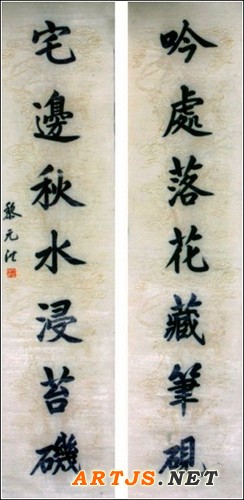 吟處落花藏筆硯
宅邊秋水浸苔磯
黎元洪
ARTJS.NET